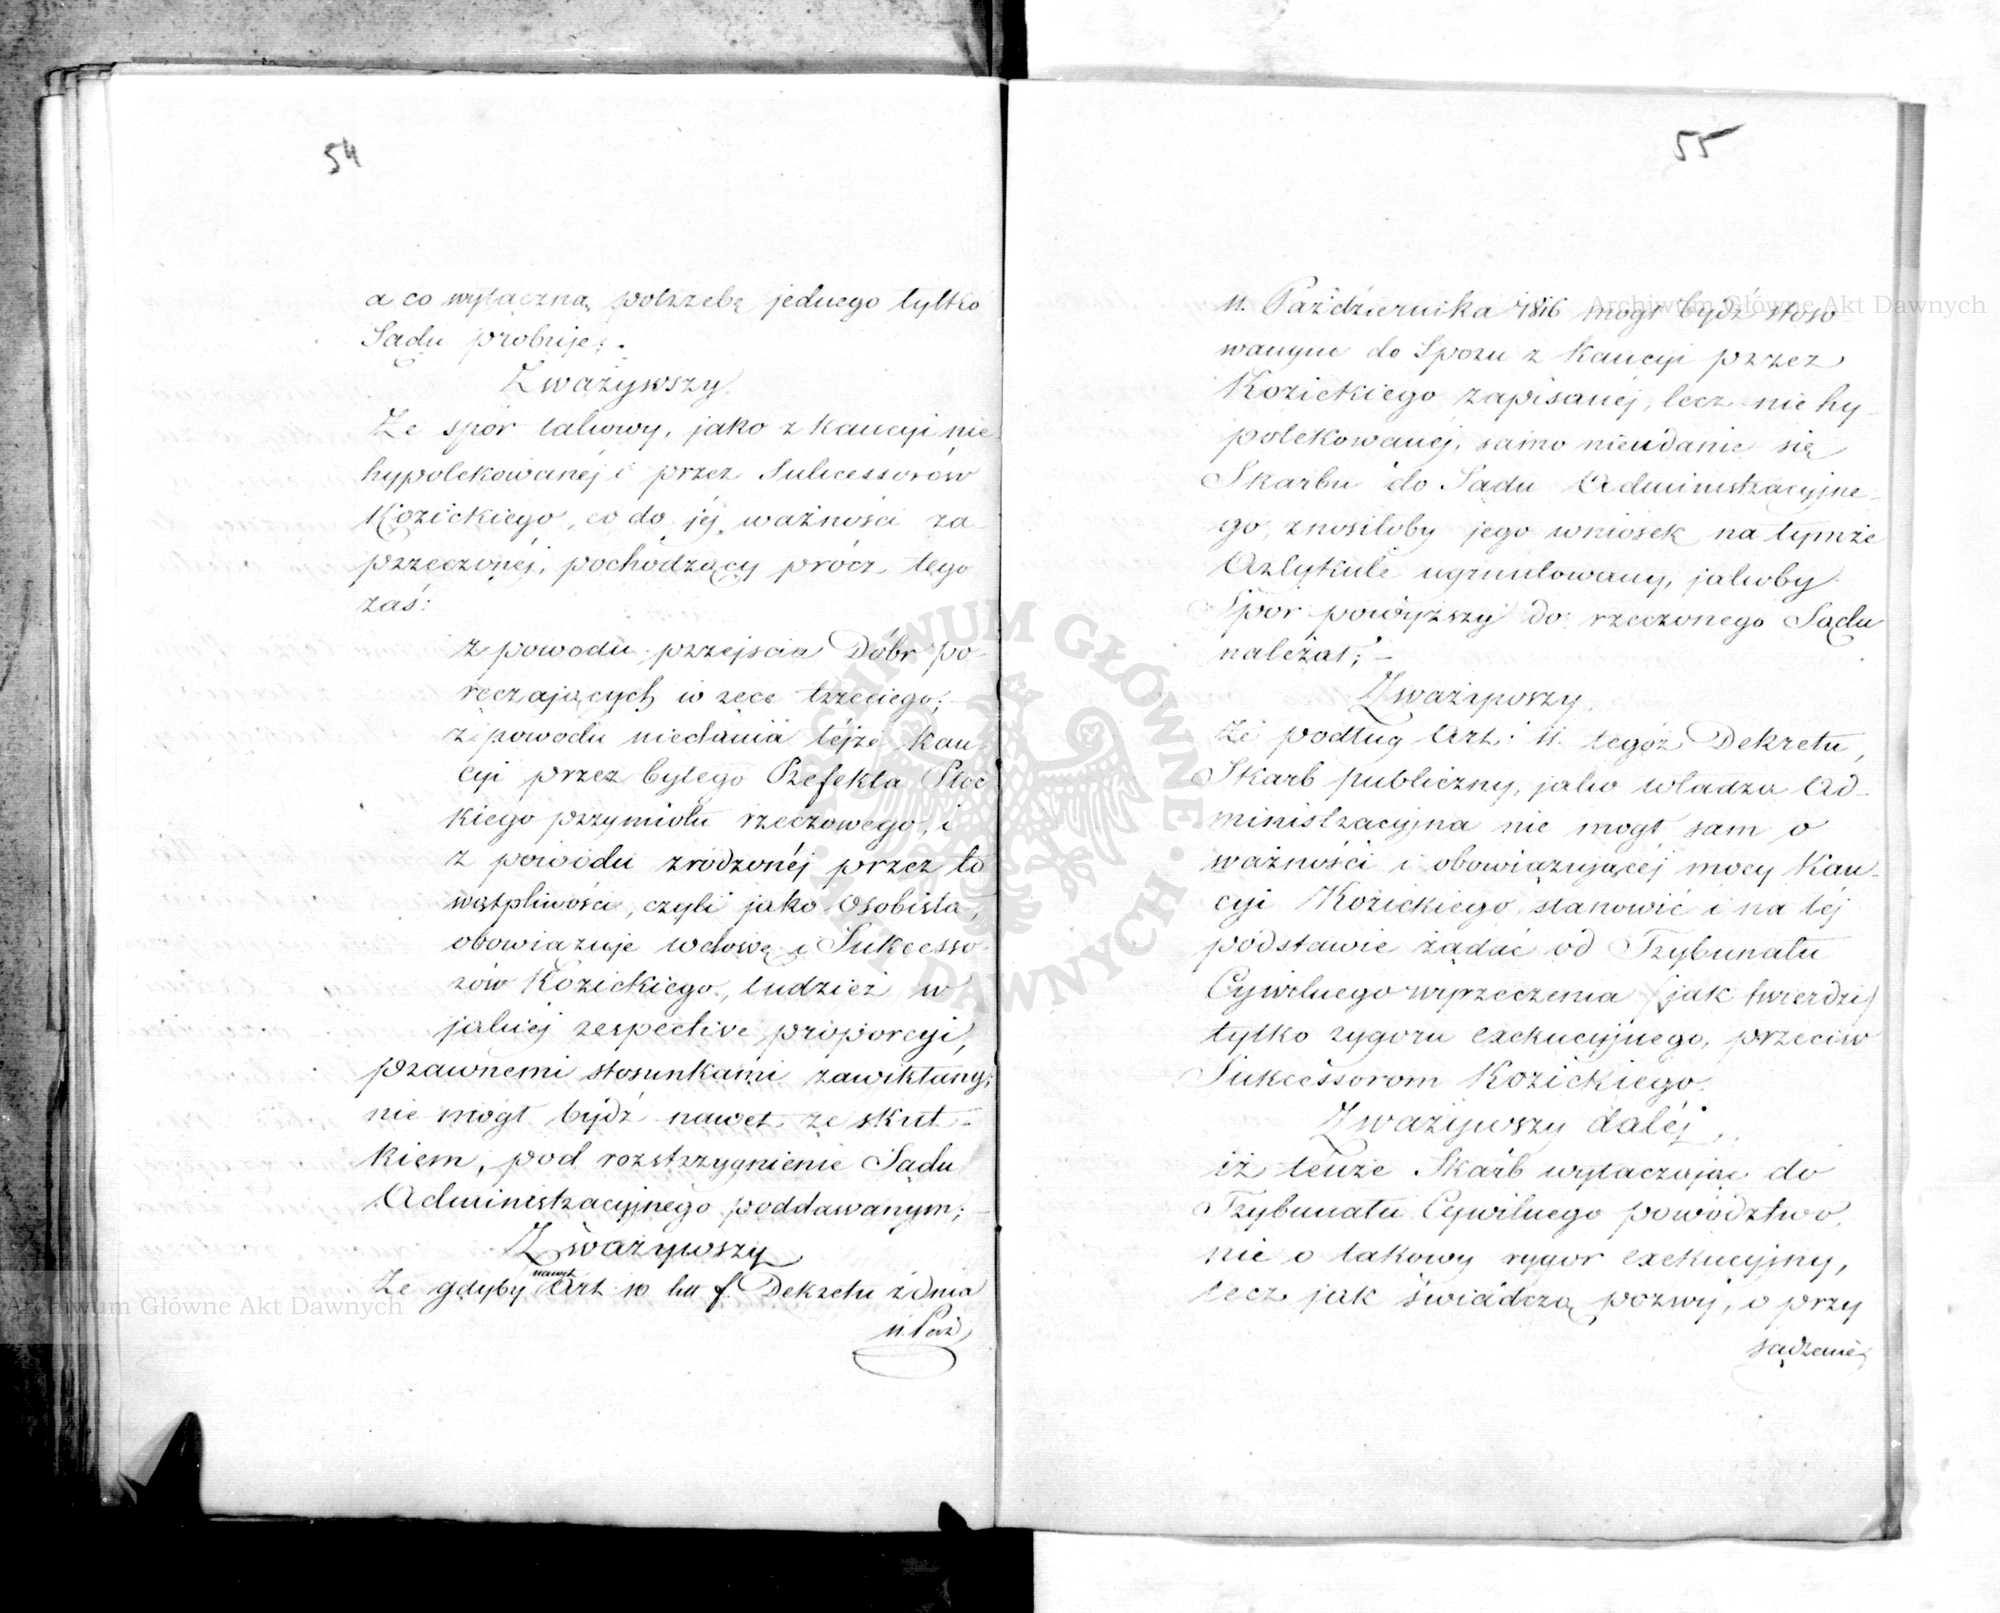 54
a co wyłączną potrzebę jednego tylko
Sądu probuje;.
Zważywszy
Że spór takowy, jako z kaucyi nie
hypotekowanéj i przez Sukcessorów
Kozickiego, co do jéj ważności za-
przeczonéj, pochodzący prócz tego
zaś:
z powodu przejscia Dóbr po-
ręczających w ręce trzeciego;
z powodu niedania téjże kau-
cyi przez byłego Prefekta Płoc
kiego przymiotu rzeczowego, i
z powodu zrodzonéj przez to
wątpliwości, czyli jako Osobista,
obowiązuje wdowę i Sukcesso-
rów Kozickiego, tudzież w
jakiej respective proporcyi,
prawnemi stosunkami zawikłany;
nie mógł bydź nawet ze skut-
kiem, pod rozstrzygnienie Sądu
Administracyjnego poddawanym;
Zważywszy
Że gdyby nawet Art. 10 litt f. Dekretu z dnia
11. Paź
55
11. Października 1816 mógł bydź stoso
wanym do Sporu z kaucyi przez
Kozickiego zapisanéj, lecz nie hy-
potekowanéj, samo nieudanie się
Skarbu do Sądu Administracyjne-
go, znosiłoby jego wniosek na tymże
Artykule ugruntowany, jakoby
Spór powyższy do rzeczonego Sądu
należał; -
Zważywszy,
Że podług Art: 11. tegoż Dekretu,
Skarb publiczny, jako władza Ad-
ministracyjna nie mógł sam o
ważności i obowiązującéj mocy Kau-
cyi Kozickiego stanowić i na téj
podstawie żądać od Trybunału
Cywilnego wyrzeczenia (jak twierdzi)
tylko rygoru exekucyjnego, przeciw
Sukcessorom Kozickiego.
Zważywszy daléj,
iż tenże Skarb wytaczając do
Trybunału Cywilnego powództwo,
nie o takowy rygor exekucyjny,
lecz jak świadczą pozwy, o przy
sądzenie
Archiwum Główne Akt Dawnych
Archiwum Główne Akt Dawnych
ARCHIWUM GŁÓWNE AKT DAWNYCH